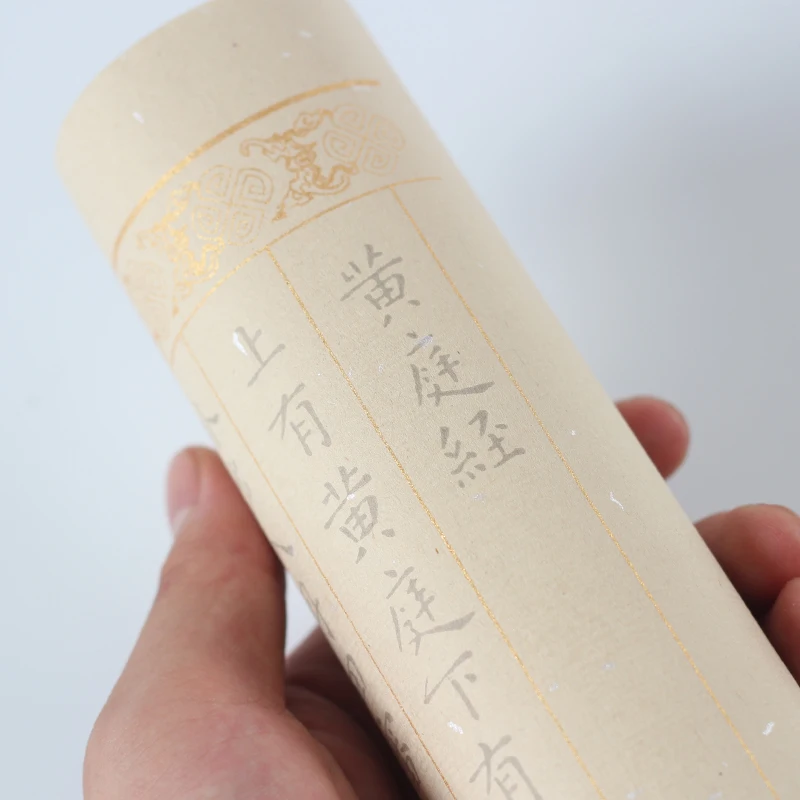 黄庭经
上有黄庭下有